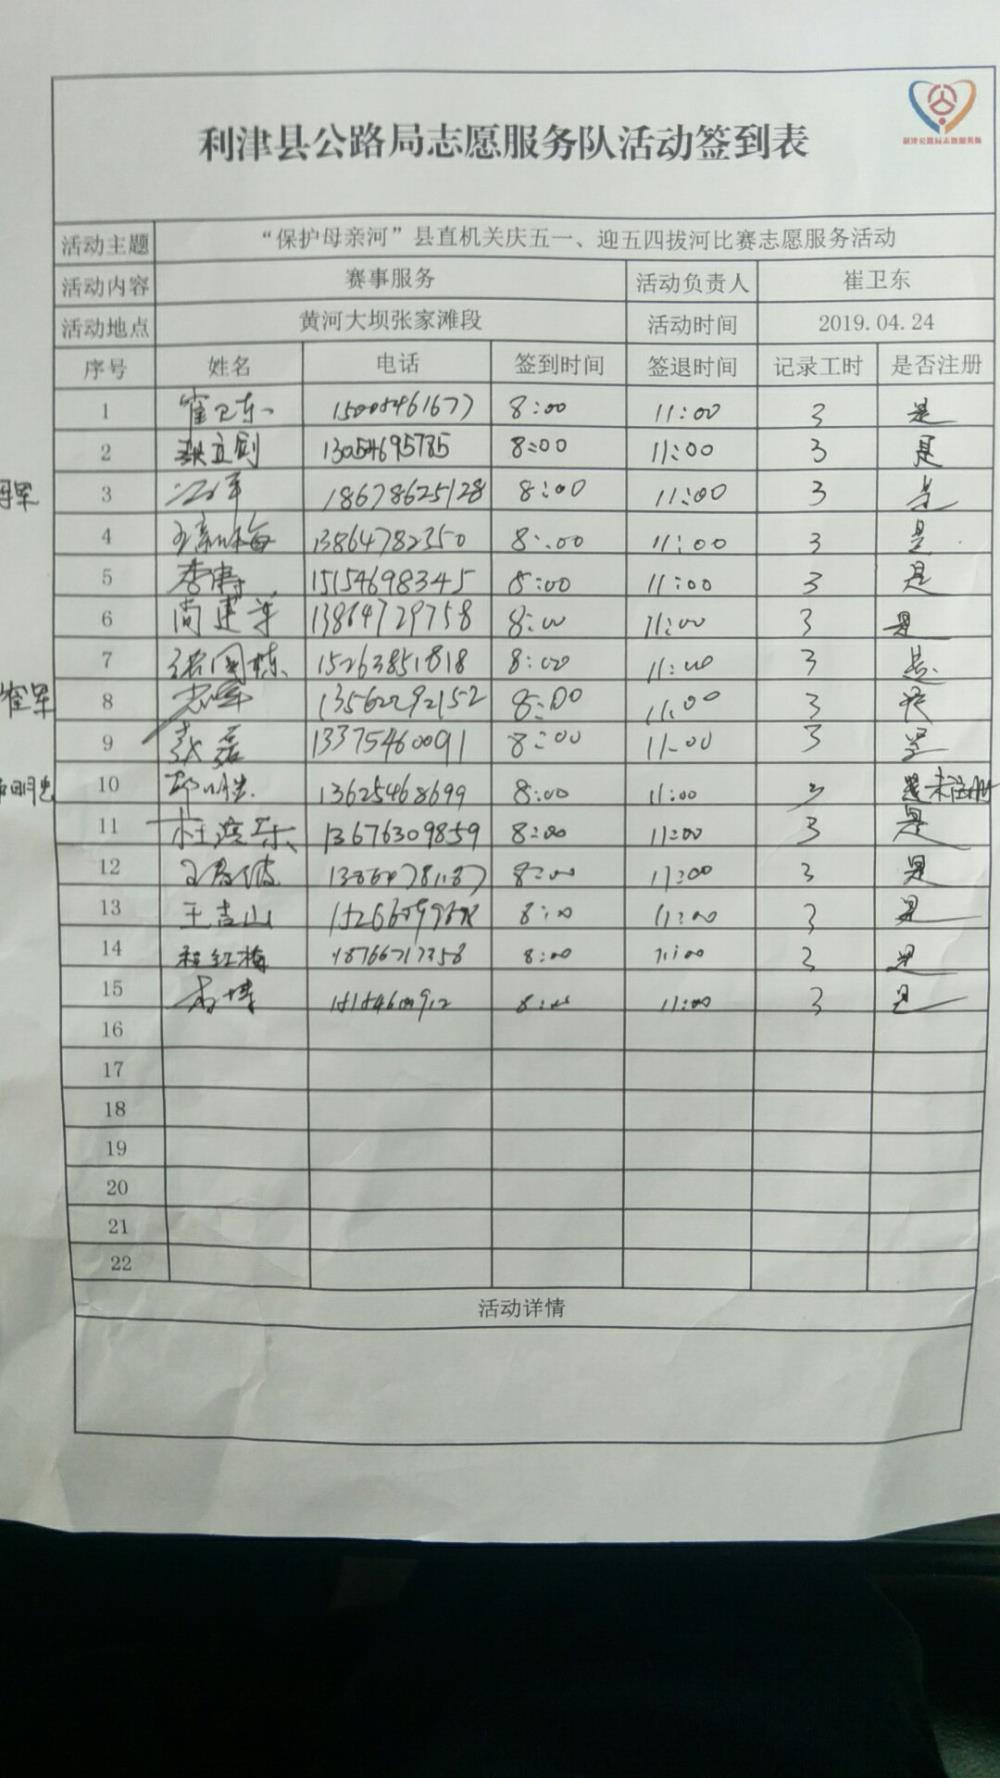 利津县公路局志愿服务队活动签到表
利津公路局志愿服务队
活动主题 “保护母亲河”县直机关庆五一、迎五四拔河比赛志愿服务活动
活动内容 赛事服务 活动负责人 崔卫东
活动地点 黄河大坝张家滩段 活动时间 2019.04.24
序号 姓名 电话 签到时间 签退时间 记录工时 是否注册
1 崔卫东 15005461677 8:00 11:00 3 是
2 张立剑 13054695785 8:00 11:00 3 是
3 18678625128 8:00 11:00 3 是
4 13864782350 8:00 11:00 3 是
5 李伟 15154698345 8:00 11:00 3 是
6 尚建军 13864729758 8:00 11:00 3 是
7 张国栋 15263851818 8:00 11:00 3 是
8 13562292152 8:00 11:00 3 是
9 赵磊 13375460091 8:00 11:00 3 是
10 13625468699 8:00 11:00 3 未注册
11 杜滨东 13676309859 8:00 11:00 3 是
12 8:00 11:00 3 是
13 王吉山 8:00 11:00 3 是
14 程红梅 18766717358 8:00 11:00 3 是
15 李博 8:00 11:00 3 是
16
17
18
19
20
21
22
活动详情